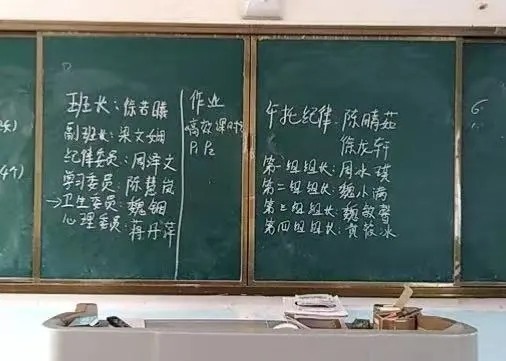 班长:徐若曦
副班长:梁文姗
纪律委员:周泽文
学习委员:陈慧岚
→卫生委员:魏钿
心理委员:蒋丹萍
作业
高效课时
P1 P2
午托纪律:陈晴茹
徐龙轩
第一组组长:周冰琪
第二组组长:魏小满
第三组组长:魏敏馨
第四组组长:黄筱冰
6